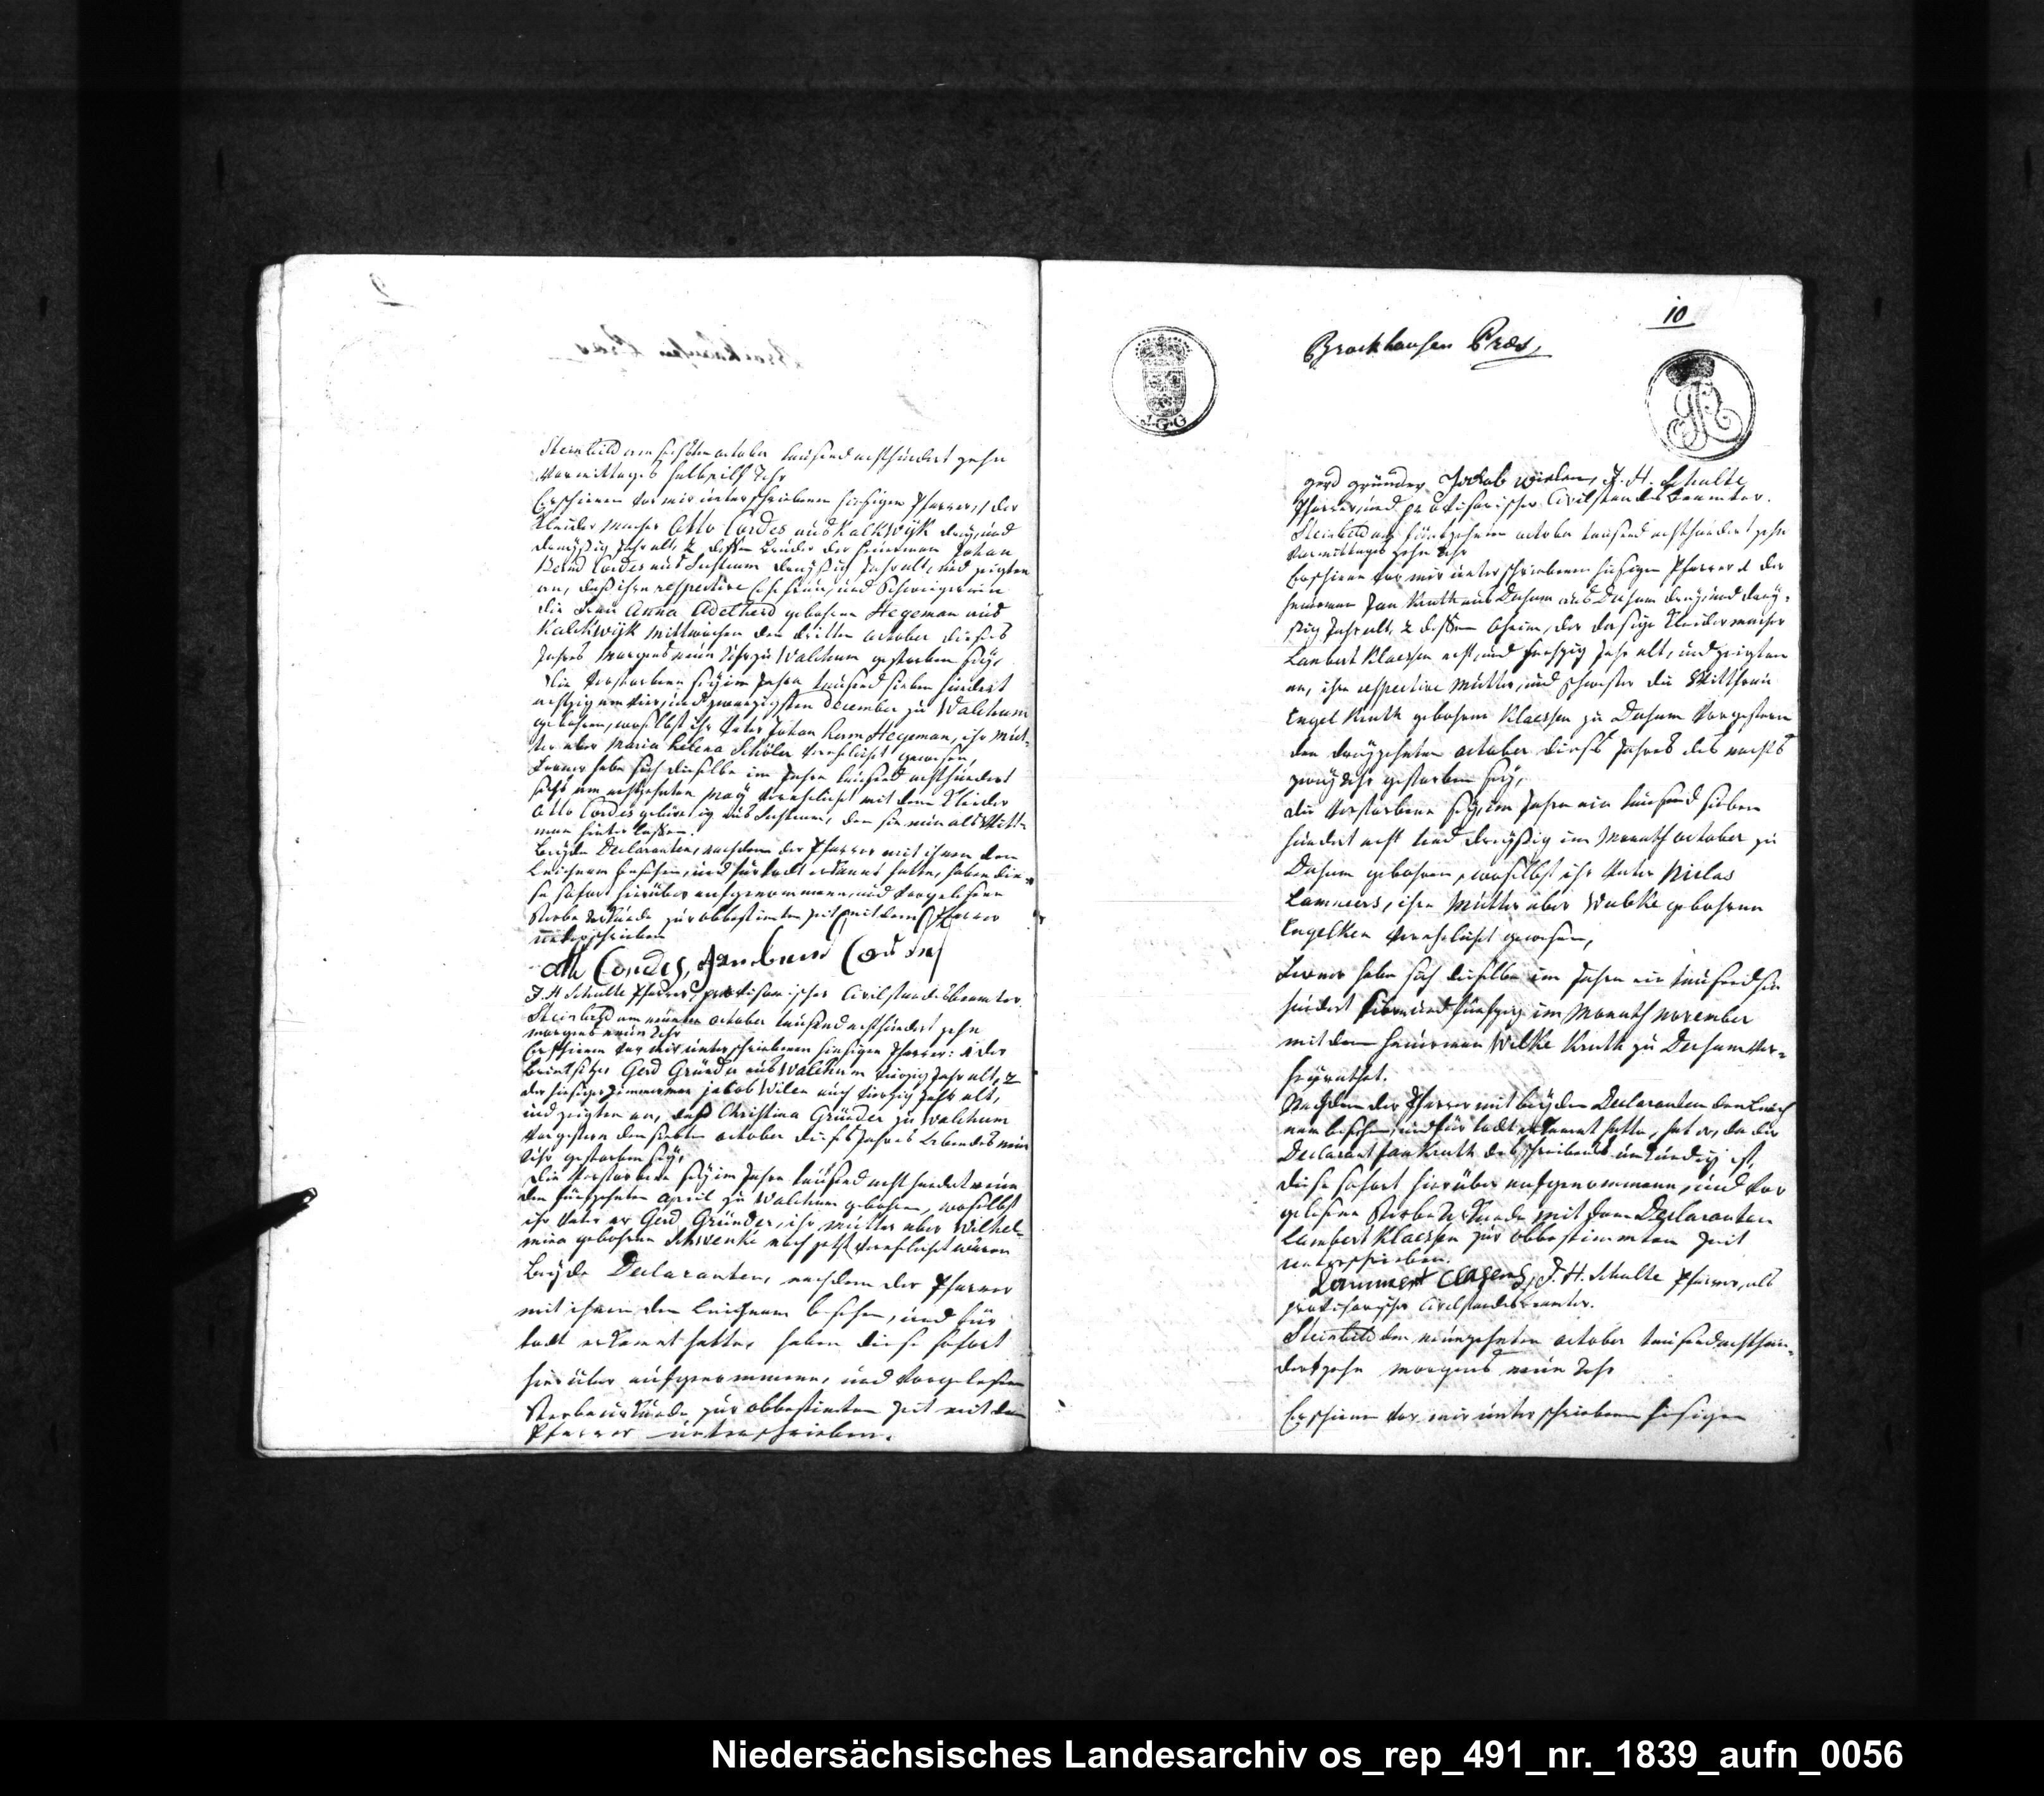 Steinbild am sechsten october tausend achthundert zehn
Vormittages halb eilf Uhr
Erschienen vor mir unterschriebenen hiesigen Pfarrer, 1 der
Kleider macher Otto Cordes aus Kalckwyk drey und
dreyßig Jahr alt, 2 dessen Bruder der Heuerman Johan
Bernd Cordes aus Sustrum dreyßig Jahr alt, und zeigten
an, daß ihre respective Ehefrau, und Schwiegerin
die Frau Anna Adelheid gebohrne Hegeman aus
Kalckwyk mittwochen den dritten october dieses
Jahres Morgens neun Uhr zu Walchum gestorben sey,
Die Verstorbene sey im Jahre tausend sieben hundert
achtzig am vier und zwanzigsten December zu Walchum
gebohren, woselbst ihr Vater Johan Herm Hegeman, ihr Mut-
ter aber Maria Helena Schüler verehlicht gewesen,
Ferner habe sich dieselbe im Jahre tausend achthundert
sechs am achtzehnten May verehelicht mit dem Kleider
Otto Cordes gebürtig aus Sustrum, den sie nun als Witt-
man hinterlassen.
Beyde Declaranten, nachdem der Pfarrer mit ihnen den
Leichnam besehen, und für todt erkannt hatte, haben die-
se sofort hierüber aufgenommene, und vorgelesene
Sterbe Urkunde zur obbestimten Zeit mit dem Pfarrer
unterschrieben
Otto Cordes, Jan bernd Cordes
J. H Schulte Pfarrer, provisorischer Civilstandesbeamter
Steinbild am neunten october tausend achthundert zehn
morgens neun Uhr
Erschienen vor mir unterschriebenen hiesigen Pfarrer: 1 der
Gerd Gründer aus Walchum vierzig Jahr alt, 2
der hiesige Zimmerman Jacob Wilen auch vierzig Jahr alt,
und zeigten an, daß Christina Gründer zu Walchum
vorgestern den siebten october dieses Jahres Abendes neun
Uhr gestorben sey,
Die Verstorbene sey im Jahre tausend acht hundert neun
den fünfzehnten april zu Walchum gebohren, woselbst
ihr Vater er Gerd Gründer, ihr mutter aber Wilhel-
mina gebohrne Schwenke noch jetzt verehlicht wären
Beyde Declaranten, nachdem der Pfarrer
mit ihnen den Leichnam besehen, und für
todt erkannt hatte, haben diese sofort
hierüber aufgenommene, und vorgelesene
Sterbeurkunde zur obbestimten Zeit mit dem
Pfarrer unterschrieben.
10
Brockhausen Præs,
J.G.G
gerd gründer Jakob wielen, J. H. Schulte
Pfarrer, und provisorischer Civilstandesbeamter.
Steinbild am fünfzehnten october tausend achthundert zehn
Vormittages zehn Uhr
Erschienen vor mir unterschriebenen hiesigen Pfarrer 1 der
Heuerman Jan Kruth aus Dersum drey und drey-
ßig Jahr alt, 2 dessen Oheim, der dasige Kleidermacher
Lambert Klaessen acht und Jahr alt, und zeigten
an, ihre respective Mutter, und Schwester die Wittfrau
Engel Kruth gebohrne Klaessen zu Dersum vorgestern
den dreyzehnten october dieses Jahres des nachts
zwey Uhr gestorben sey,
die Verstorbene sey im Jahre ein tausend sieben
hundert acht und dreyßig im Monath october zu
Dersum gebohren, woselbst ihr Vater Niclas
Lammers, ihre Mutter aber Wobke gebohrne
Engelken verehelicht gewesen,
Ferner habe sich dieselbe im Jahre ein tausend sie
hundert sieben und im Monath november
mit dem Heuerman Wilke Kruth zu Dersum ver-
heyrathet.
Nachdem der Pfarrer mit beyden Declaranten den Leich
nam besehen, und für todt erkannt hatte, hat er, da der
Declarant Jan Kruth des schreibens unkündig ist,
diese sofort hierüber aufgenommene, und vor
gelesene Sterbe Urkunde mit dem Declaranten
Lambert Klaessen zur obbestimmten Zeit
unterschrieben.
Lammert Clasens, J. H. Schulte Pfarrer, als
provisorischer Civilstandesbeamter.
Steinbild den neunzehnten october tausendachthun-
dertzehn morgens neun Uhr
Erschienen vor mir unterschriebenen hiesigen
Niedersächsisches Landesarchiv os_rep_491_nr._1839_aufn_0056